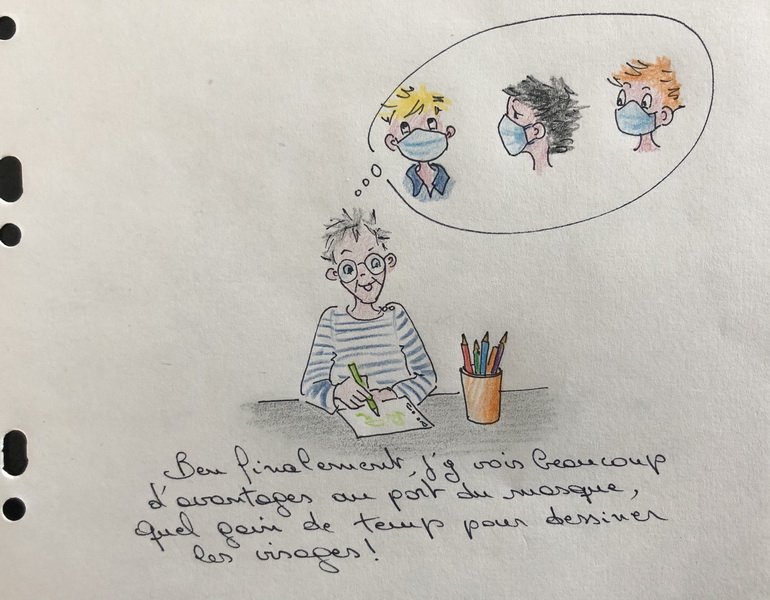 Ben finalement, j'y vois beaucoup
d'avantages au port du masque,
quel gain de temp pour dessiner
les visages!